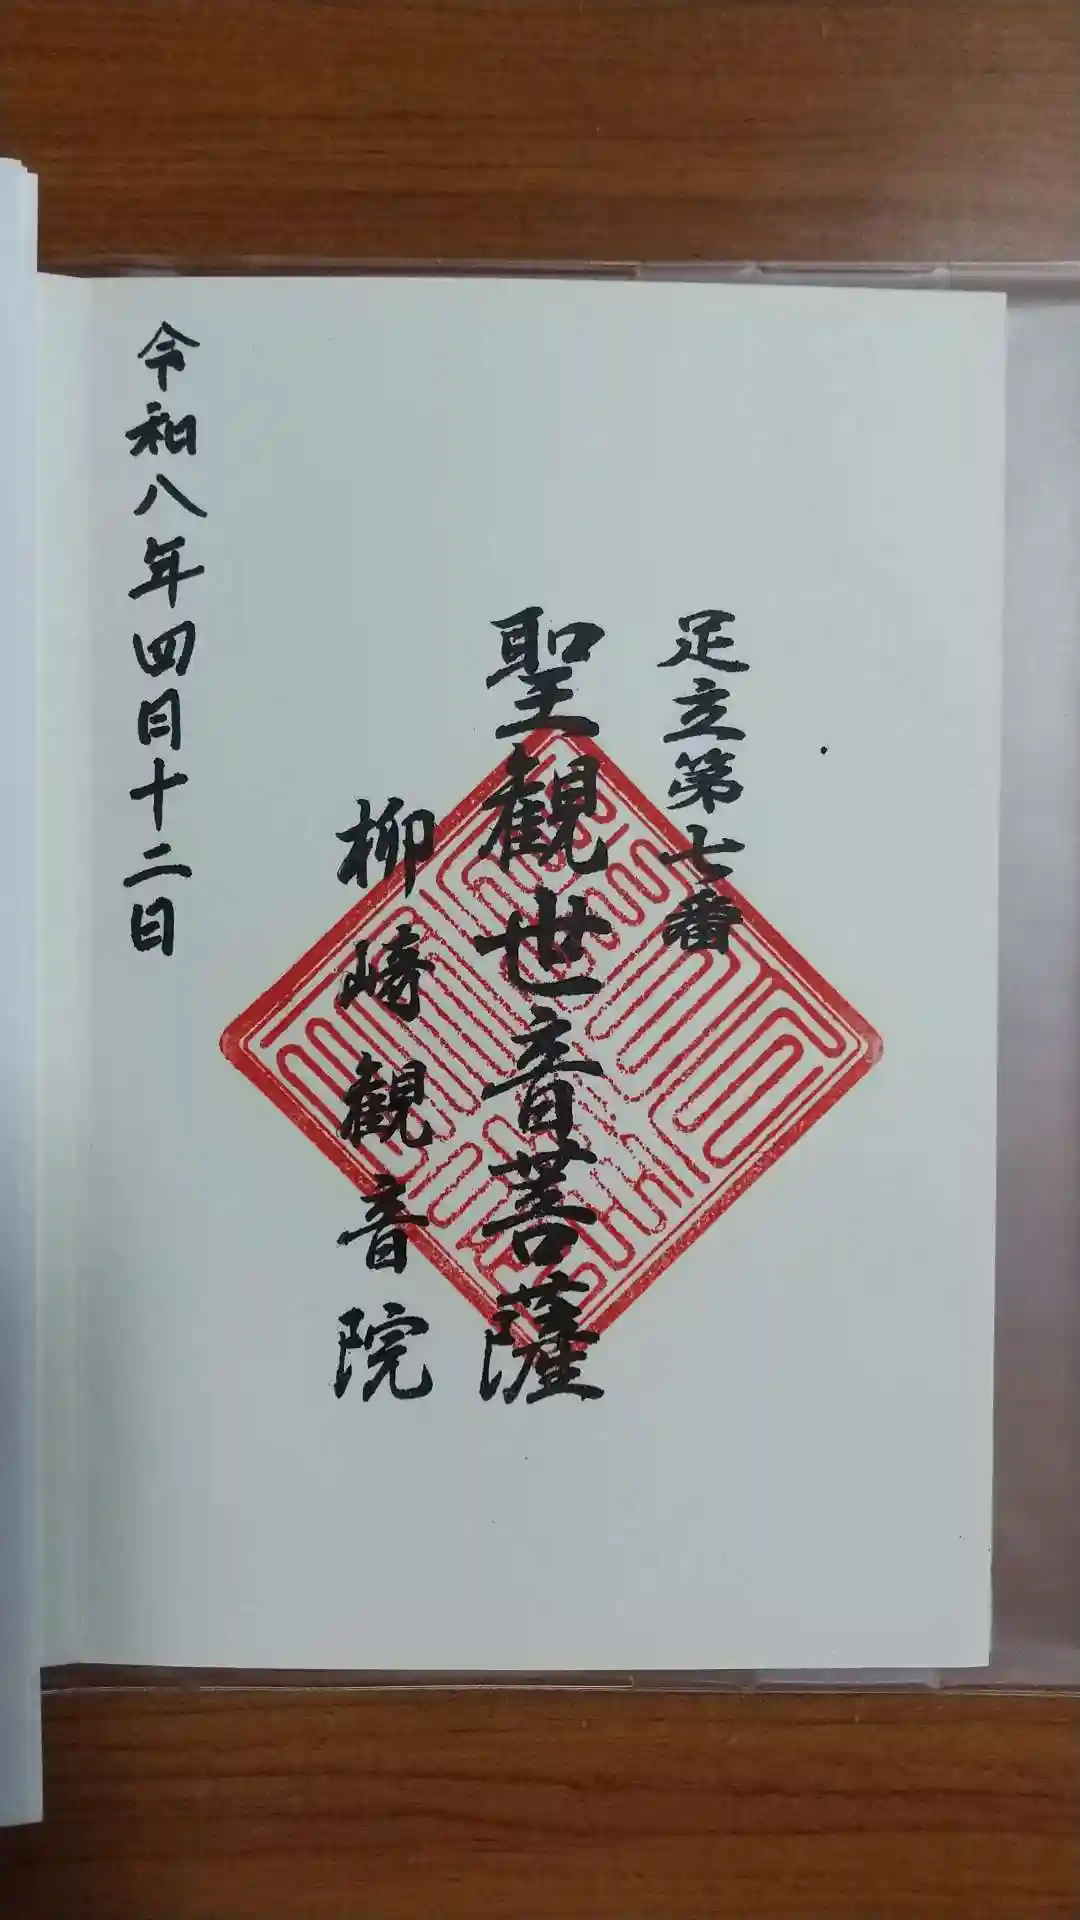 足立第七番
聖観世音菩薩
柳崎観音院
令和八年四月十二日